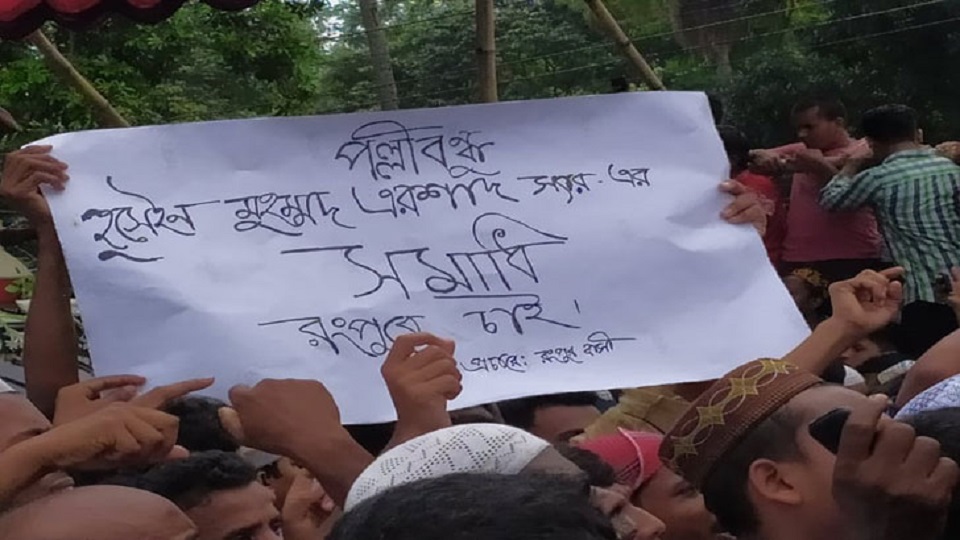 পল্লীবন্ধু
হুসেইন মুহম্মদ এরশাদ স্যার-এর
সমাধি
রংপুরে চাই।
প্রচারে: রংপুর বাসী